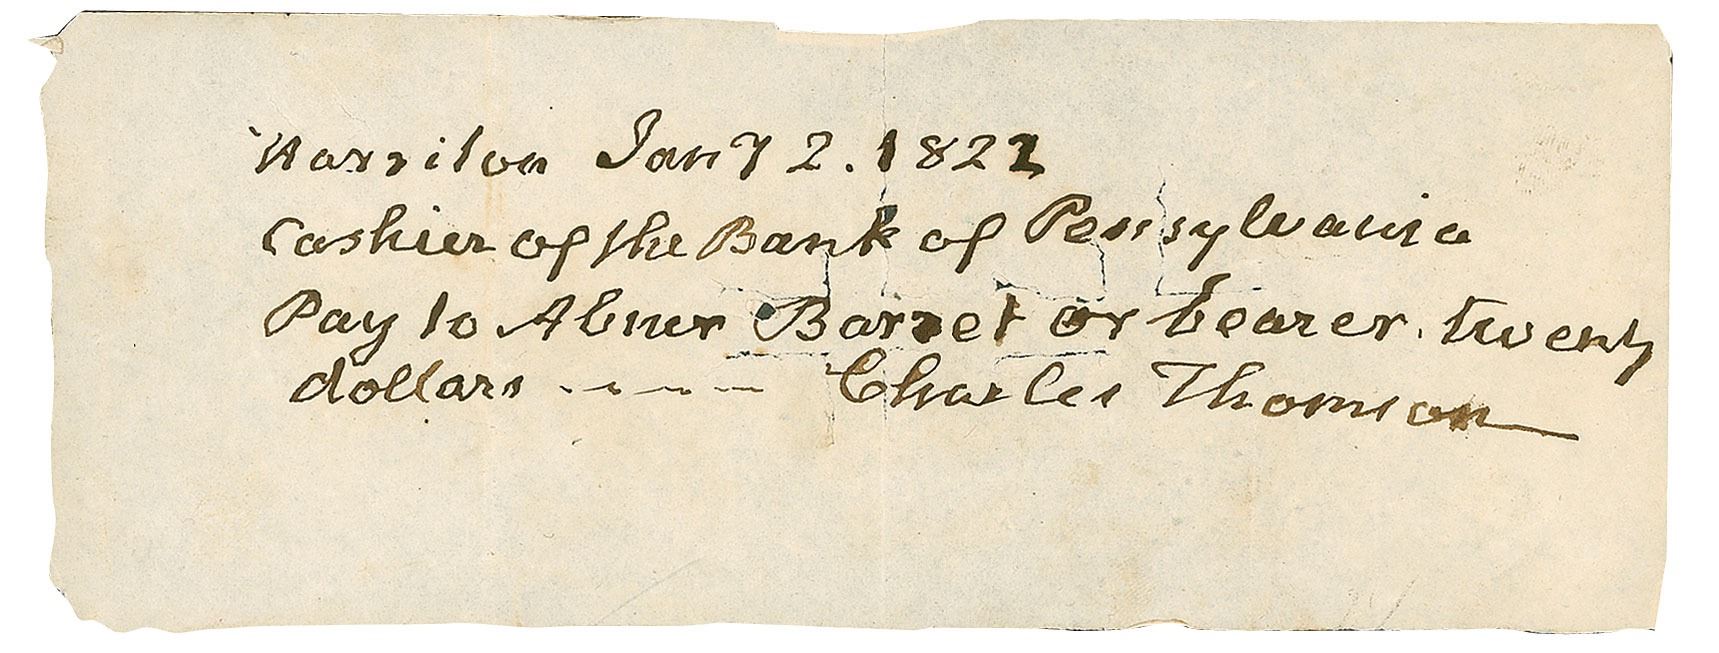 Harriton Jany 2. 1822
Cashier of the Bank of Pennsylvania
Pay to Abner Barret or bearer. twenty
dollars ---- Charles Thomson